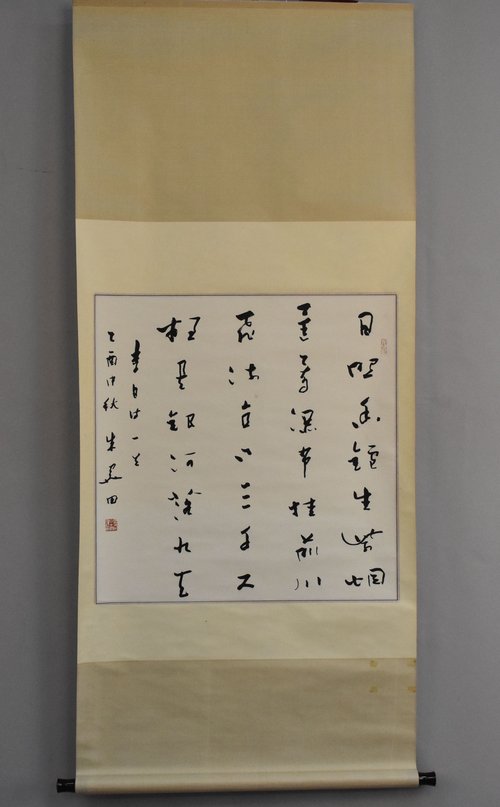 日照香鑪生紫烟
遙看瀑布挂前川
飛流直下三千尺
疑是銀河落九天
李白诗一首
乙酉中秋 朱田